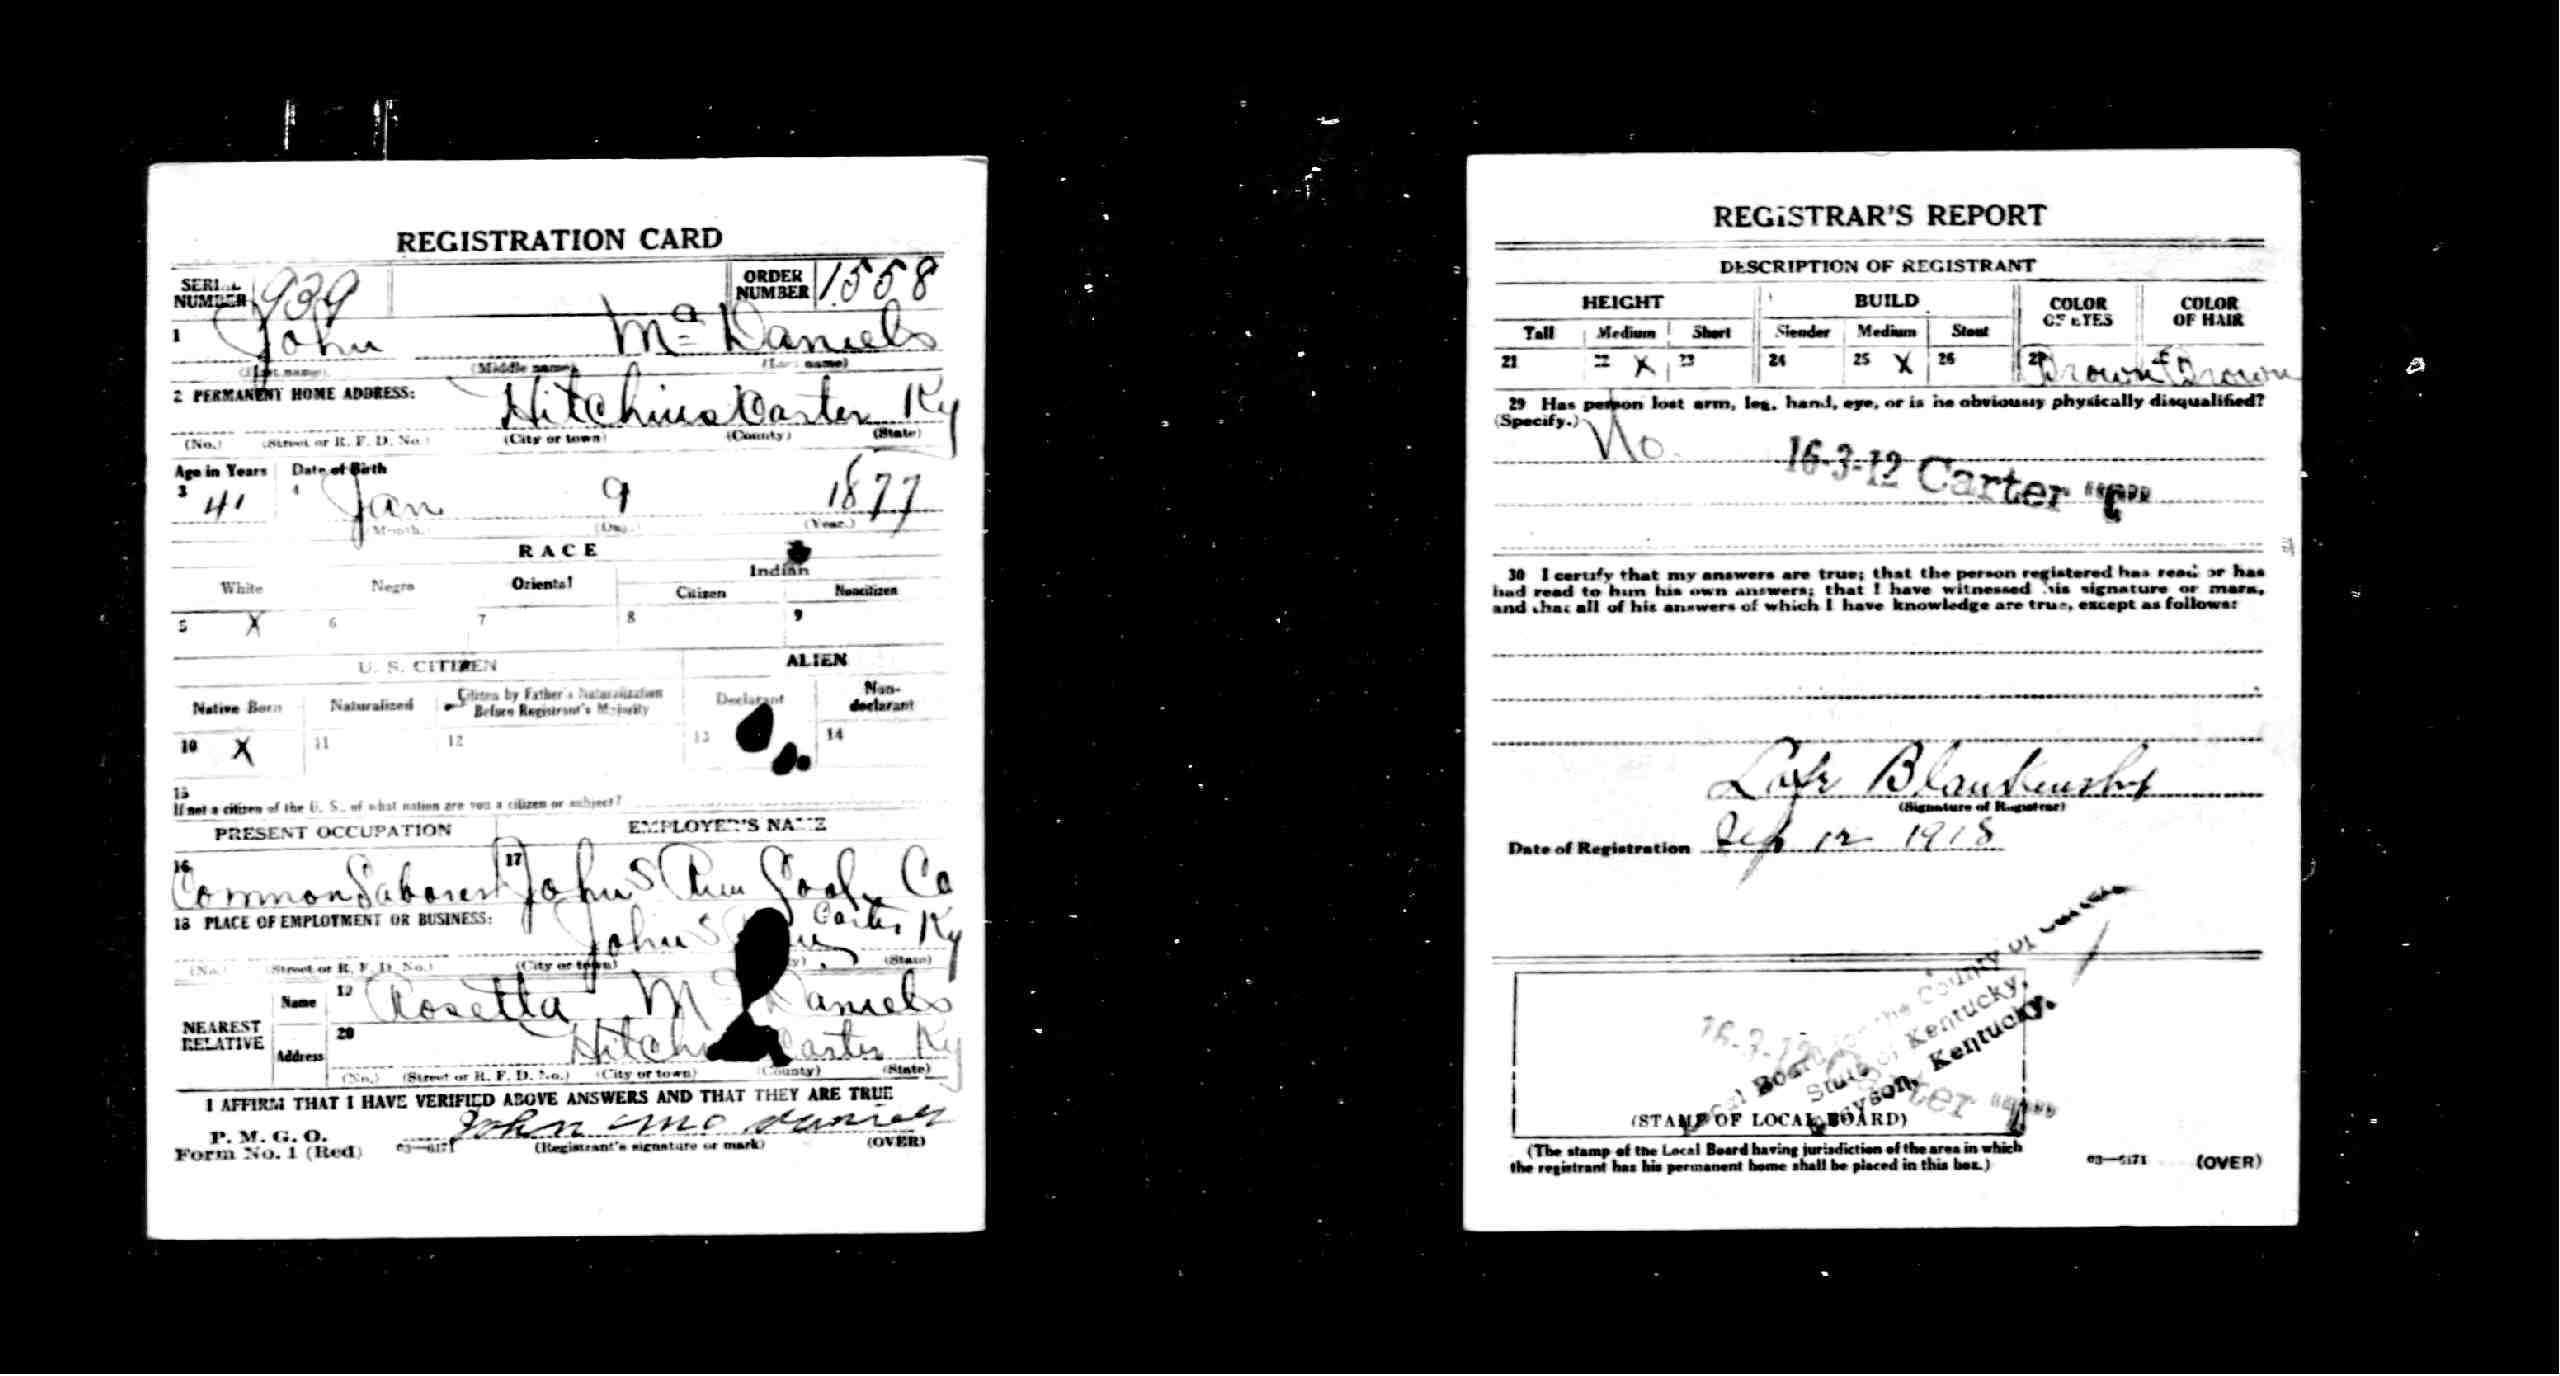 REGISTRATION CARD
SERIAL NUMBER 939
ORDER NUMBER 1558
1 John Mc Daniels
(First name) (Middle name) (Last name)
2 PERMANENT HOME ADDRESS:
Hitchins Carter Ky
(No.) (Street or R. F. D. No.) (City or town) (County) (State)
Age in Years Date of Birth
3 41 4 Jan 9 1877
(Month.) (Day.) (Year.)
RACE
White Negro Oriental Indian
Citizen Noncitizen
5 X 6 7 8 9
U. S. CITIZEN ALIEN
Native Born Naturalized Citizen by Father's Naturalization Before Registrant's Majority Declarant Non-declarant
10 X 11 12 13 14
15
If not a citizen of the U. S., of what nation are you a citizen or subject?
PRESENT OCCUPATION EMPLOYER'S NAME
16 Common Laborer 17 Johns Run Coal Co
18 PLACE OF EMPLOYMENT OR BUSINESS:
Johns Carter Ky
(No.) (Street or R. F. D. No.) (City or town) (State)
NEAREST RELATIVE
Name 19 Rosetta Mc Daniels
Address 20 Carter Ky
(No.) (Street or R. F. D. No.) (City or town) (County) (State)
I AFFIRM THAT I HAVE VERIFIED ABOVE ANSWERS AND THAT THEY ARE TRUE
P. M. G. O.
Form No. 1 (Red) 03—6171 John Mc Daniels
(Registrant's signature or mark) (OVER)
REGISTRAR'S REPORT
DESCRIPTION OF REGISTRANT
HEIGHT BUILD COLOR OF EYES COLOR OF HAIR
Tall Medium Short Slender Medium Stout
21 22 X 23 24 25 X 26 27 Brown Brown
29 Has person lost arm, leg, hand, eye, or is he obviously physically disqualified?
(Specify.) No.
16-3-12 Carter "C"
30 I certify that my answers are true; that the person registered has read or has
had read to him his own answers; that I have witnessed his signature or mark,
and that all of his answers of which I have knowledge are true, except as follows:
Blankenship
(Signature of Registrar)
Date of Registration Sep 12 1918
Local Board for the County of Carter
State of Kentucky,
Grayson, Kentucky.
16-3-12 Carter
(STAMP OF LOCAL BOARD)
(The stamp of the Local Board having jurisdiction of the area in which
the registrant has his permanent home shall be placed in this box.)
03—6171 (OVER)